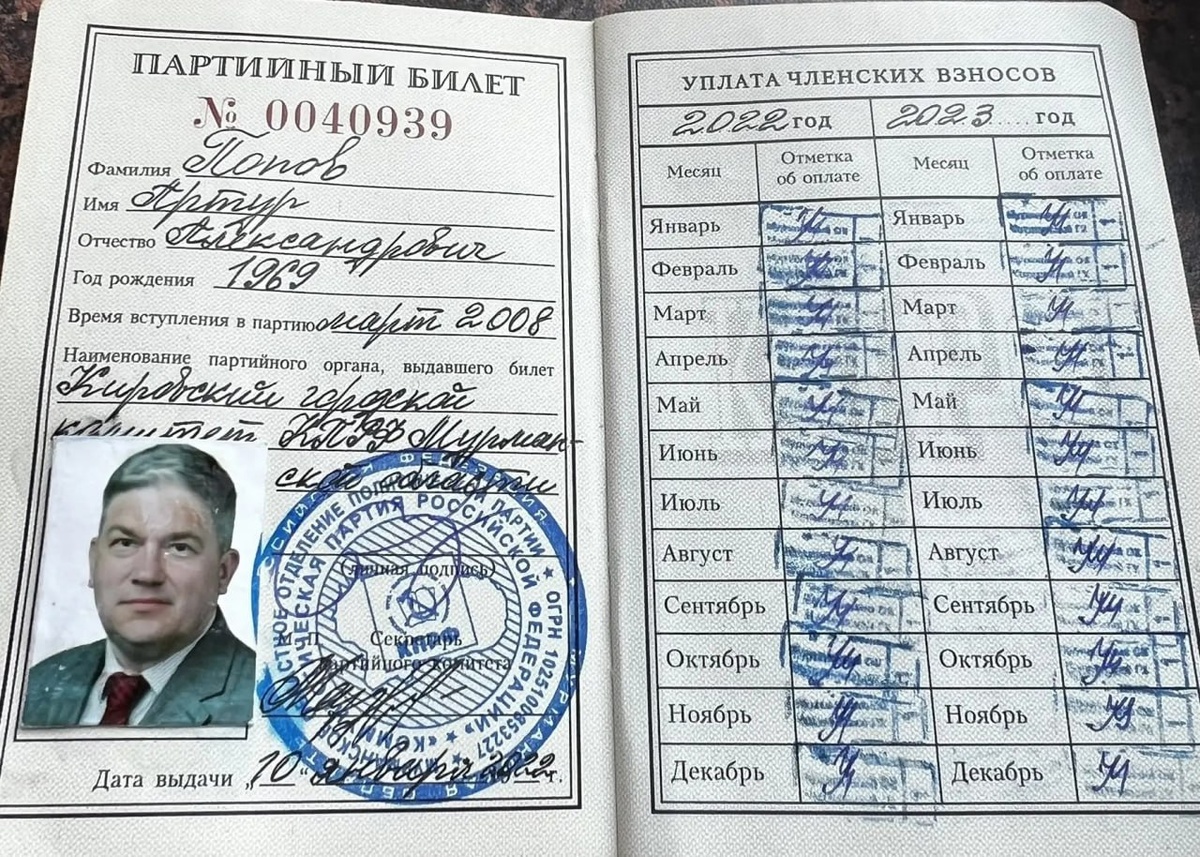 ПАРТИЙНЫЙ БИЛЕТ
№ 0040939
Фамилия Попов
Имя Артур
Отчество Александрович
Год рождения 1969
Время вступления в партию март 2008
Наименование партийного органа, выдавшего билет
Кировский городской
комитет КПРФ Мурман-
ской области
(личная подпись)
М.П. Секретарь
партийного комитета
Дата выдачи „10" января 2022 г.
МЕСТНОЕ ОТДЕЛЕНИЕ ПОЛИТИЧЕСКОЙ ПАРТИИ ★ ОГРН
ПАРТИЯ РОССИЙСКОЙ ФЕДЕРАЦИИ»
КПРФ
УПЛАТА ЧЛЕНСКИХ ВЗНОСОВ
2022 год 2023 .... год
Месяц Отметка об оплате Месяц Отметка об оплате
Январь Январь
Февраль Февраль
Март Март
Апрель Апрель
Май Май
Июнь Июнь
Июль Июль
Август Август
Сентябрь Сентябрь
Октябрь Октябрь
Ноябрь Ноябрь
Декабрь Декабрь